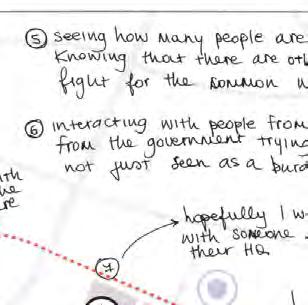 ⑤ seeing how many people are
Knowing that there are oth
fight for the common w
⑥ interacting with people from
from the government trying
not just seen as a burd
ith
he
re
hopefully I w
with someone
their HQ
⑦